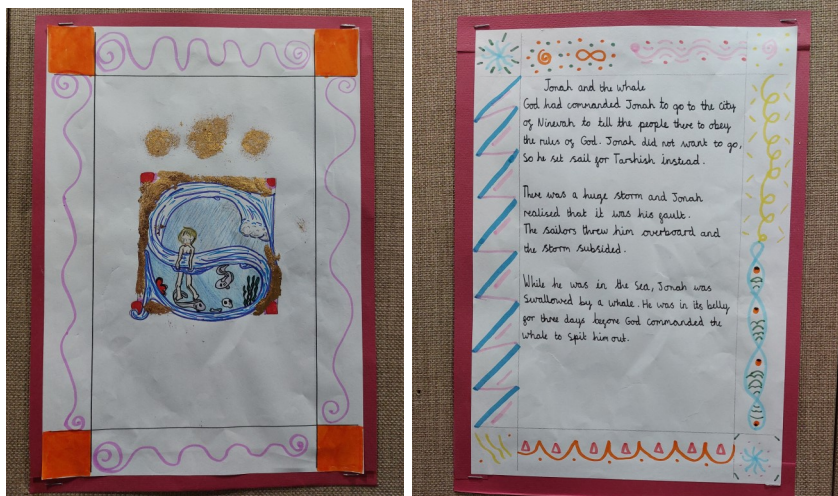 Jonah and the whale
God had commanded Jonah to go to the City
of Ninevah to tell the people there to obey
the rules of God. Jonah did not want to go,
So he set sail for Tarshish instead.
There was a huge storm and Jonah
realised that it was his fault.
The sailors threw him overboard and
the storm subsided.
While he was in the Sea, Jonah was
Swallowed by a whale. He was in its belly
for three days before God commanded the
whale to spit him out.